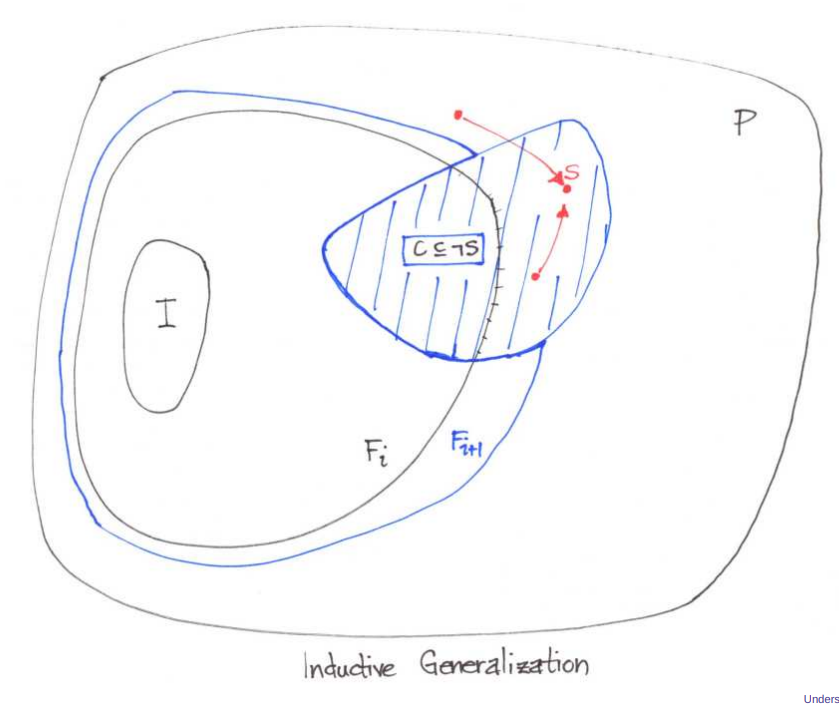 P
S
C ⊆ ¬S
I
F_i
F_{i+1}
Inductive Generalization
Unders